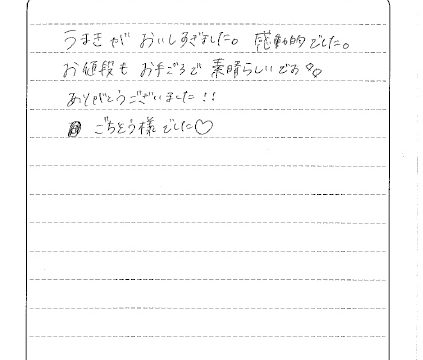 うまきが おいしすぎました。 感動的でした。
お値段も お手ごろで 素晴らしいです
ありがとうございました!!
ごちそう様でした♡